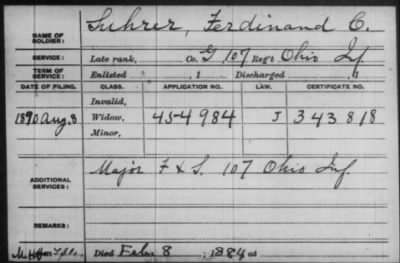 NAME OF SOLDIER: Suhrer, Ferdinand C.
SERVICE: Late rank, Co. G, 107 Reg't Ohio Inf.
TERM OF SERVICE: Enlisted , 1 Discharged , 1
DATE OF FILING. CLASS. APPLICATION NO. LAW. CERTIFICATE NO.
Invalid,
1890 Aug. 8 Widow, 454984 J 343818
Minor,
ADDITIONAL SERVICES: Major F & S. 107 Ohio Inf.
REMARKS:
Died Feb 8, 1884 at